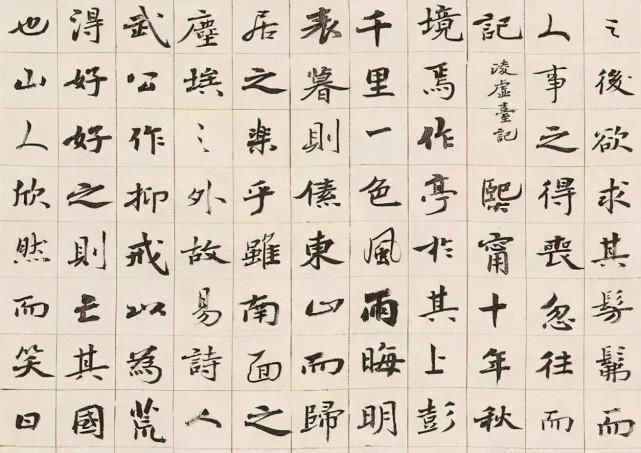 之後欲求其髣髴而
人事之得喪忽往而
記凌虛臺記熙甯十年秋
境焉作亭於其上彭
千里一色風雨晦明
表暮則傃東山而歸
居之樂乎雖南面之
塵埃之外故易詩人
武公作抑戒以為荒
得好好之則亡其國
也山人欣然而笑曰